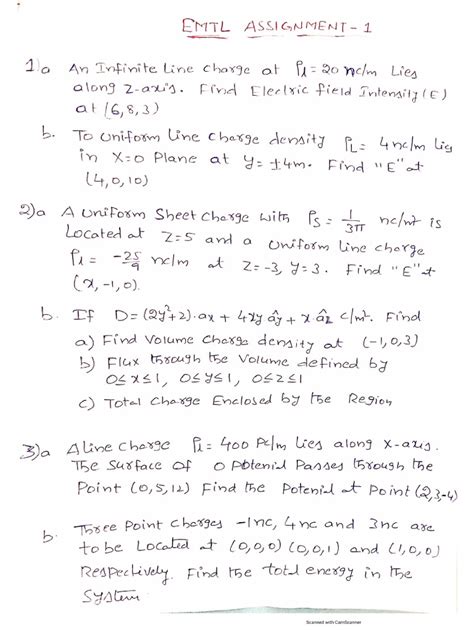 EMTL ASSIGNMENT-1
1)a An Infinite Line charge at ρl = 20 nc/m Lies
along Z-axis. Find Electric field Intensity (E)
at (6,8,3)
b. To Uniform Line Charge density ρL = 4nc/m lies
in X=0 Plane at y= ±4m. Find "E" at
(4,0,10)
2)a A Uniform Sheet Charge with ρs = 1/3π nc/m² is
Located at Z=5 and a Uniform line charge
ρl = -25/9 nc/m at Z=-3, y=3. Find "E" at
(x,-1,0).
b. If D=(2y²+z).ax + 4xy ây + x.âz c/m². Find
a) Find Volume Charge density at (-1,0,3)
b) Flux through the Volume defined by
0≤x≤1, 0≤y≤1, 0≤z≤1
c) Total Charge Enclosed by the Region
3)a A line Charge ρl = 400 Pc/m lies along x-axis.
The Surface of 0 Potenial Passes through the
Point (0,5,12) Find the Potenial at Point (2,3,-4)
b. Three Point Charges -1nc, 4nc and 3nc are
to be Located at (0,0,0) (0,0,1) and (1,0,0)
Respectively. Find the total energy in the
System.
Scanned with CamScanner